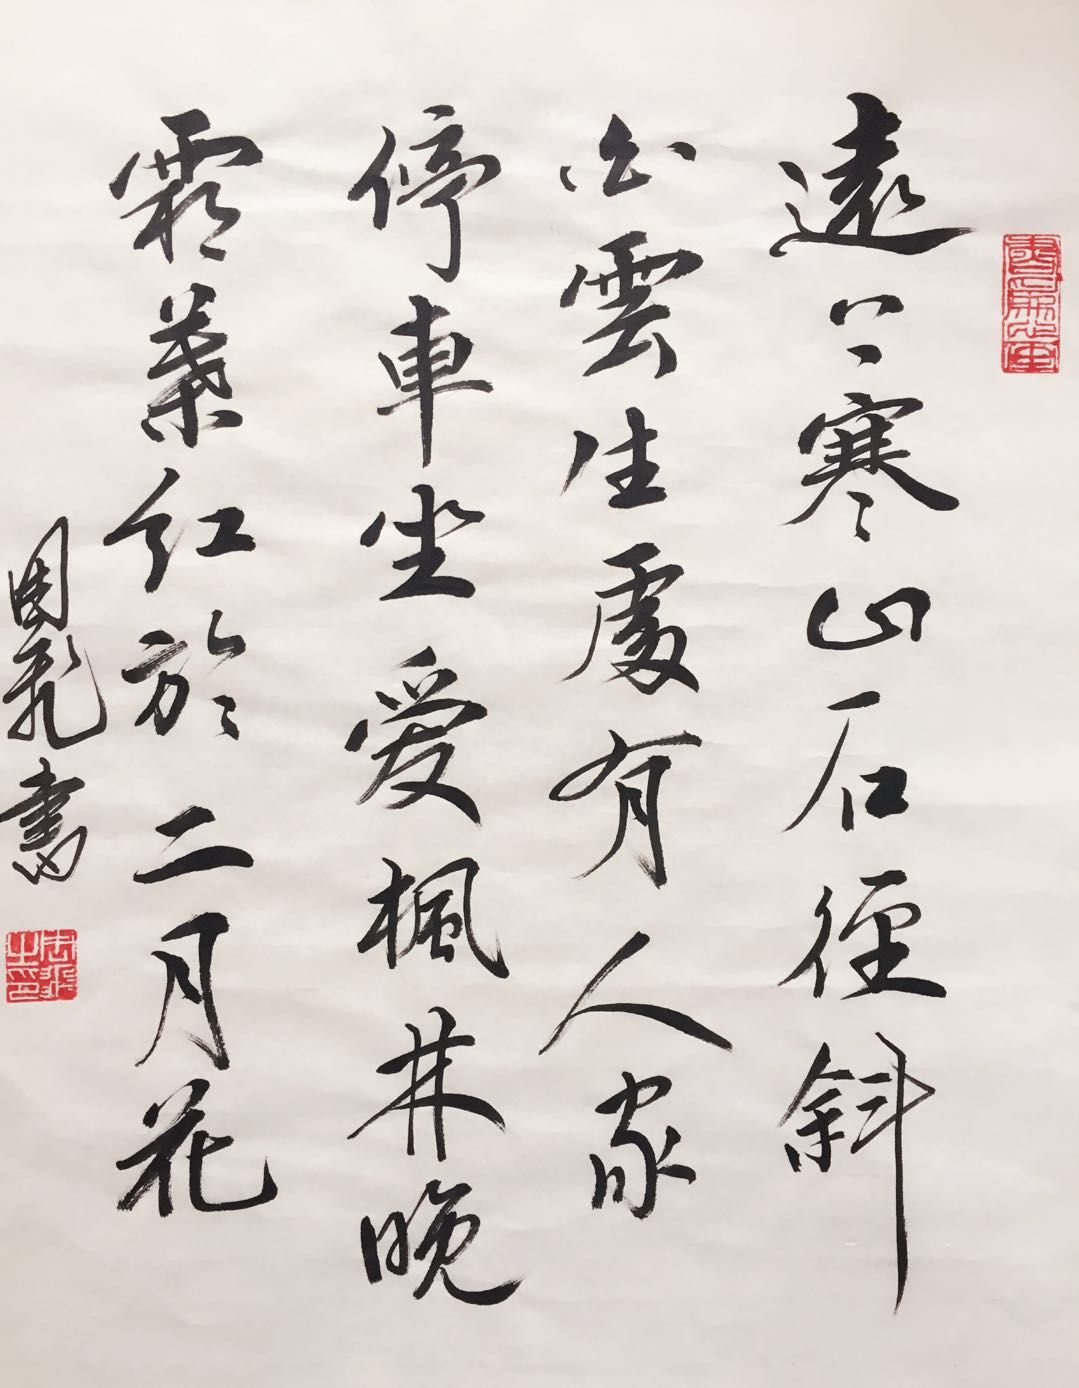 遠上寒山石徑斜
白雲生處有人家
停車坐爱楓林晚
霜葉紅於二月花
周飛書
周飛之印